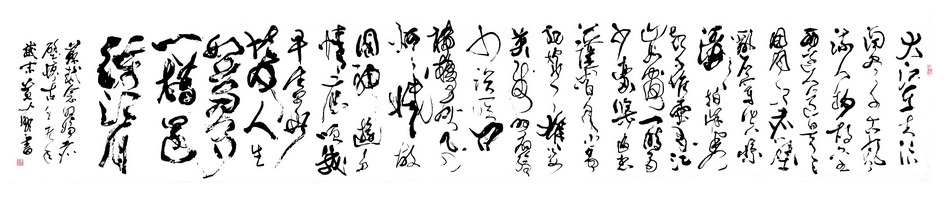 大江東去浪
淘盡千古風
流人物故壘
西邊人道是三
國周郎赤壁
亂石穿空驚
濤拍岸卷
起千堆雪江
山如畫一時多
少豪傑遙想
公瑾當年小喬
初嫁了雄姿
英發羽扇
談笑間
檣櫓灰飛
煙滅故
國神遊多
情應笑我
早生華
髮人生
如夢
一樽還
酹江月
蘇軾念奴嬌
赤壁懷古
書